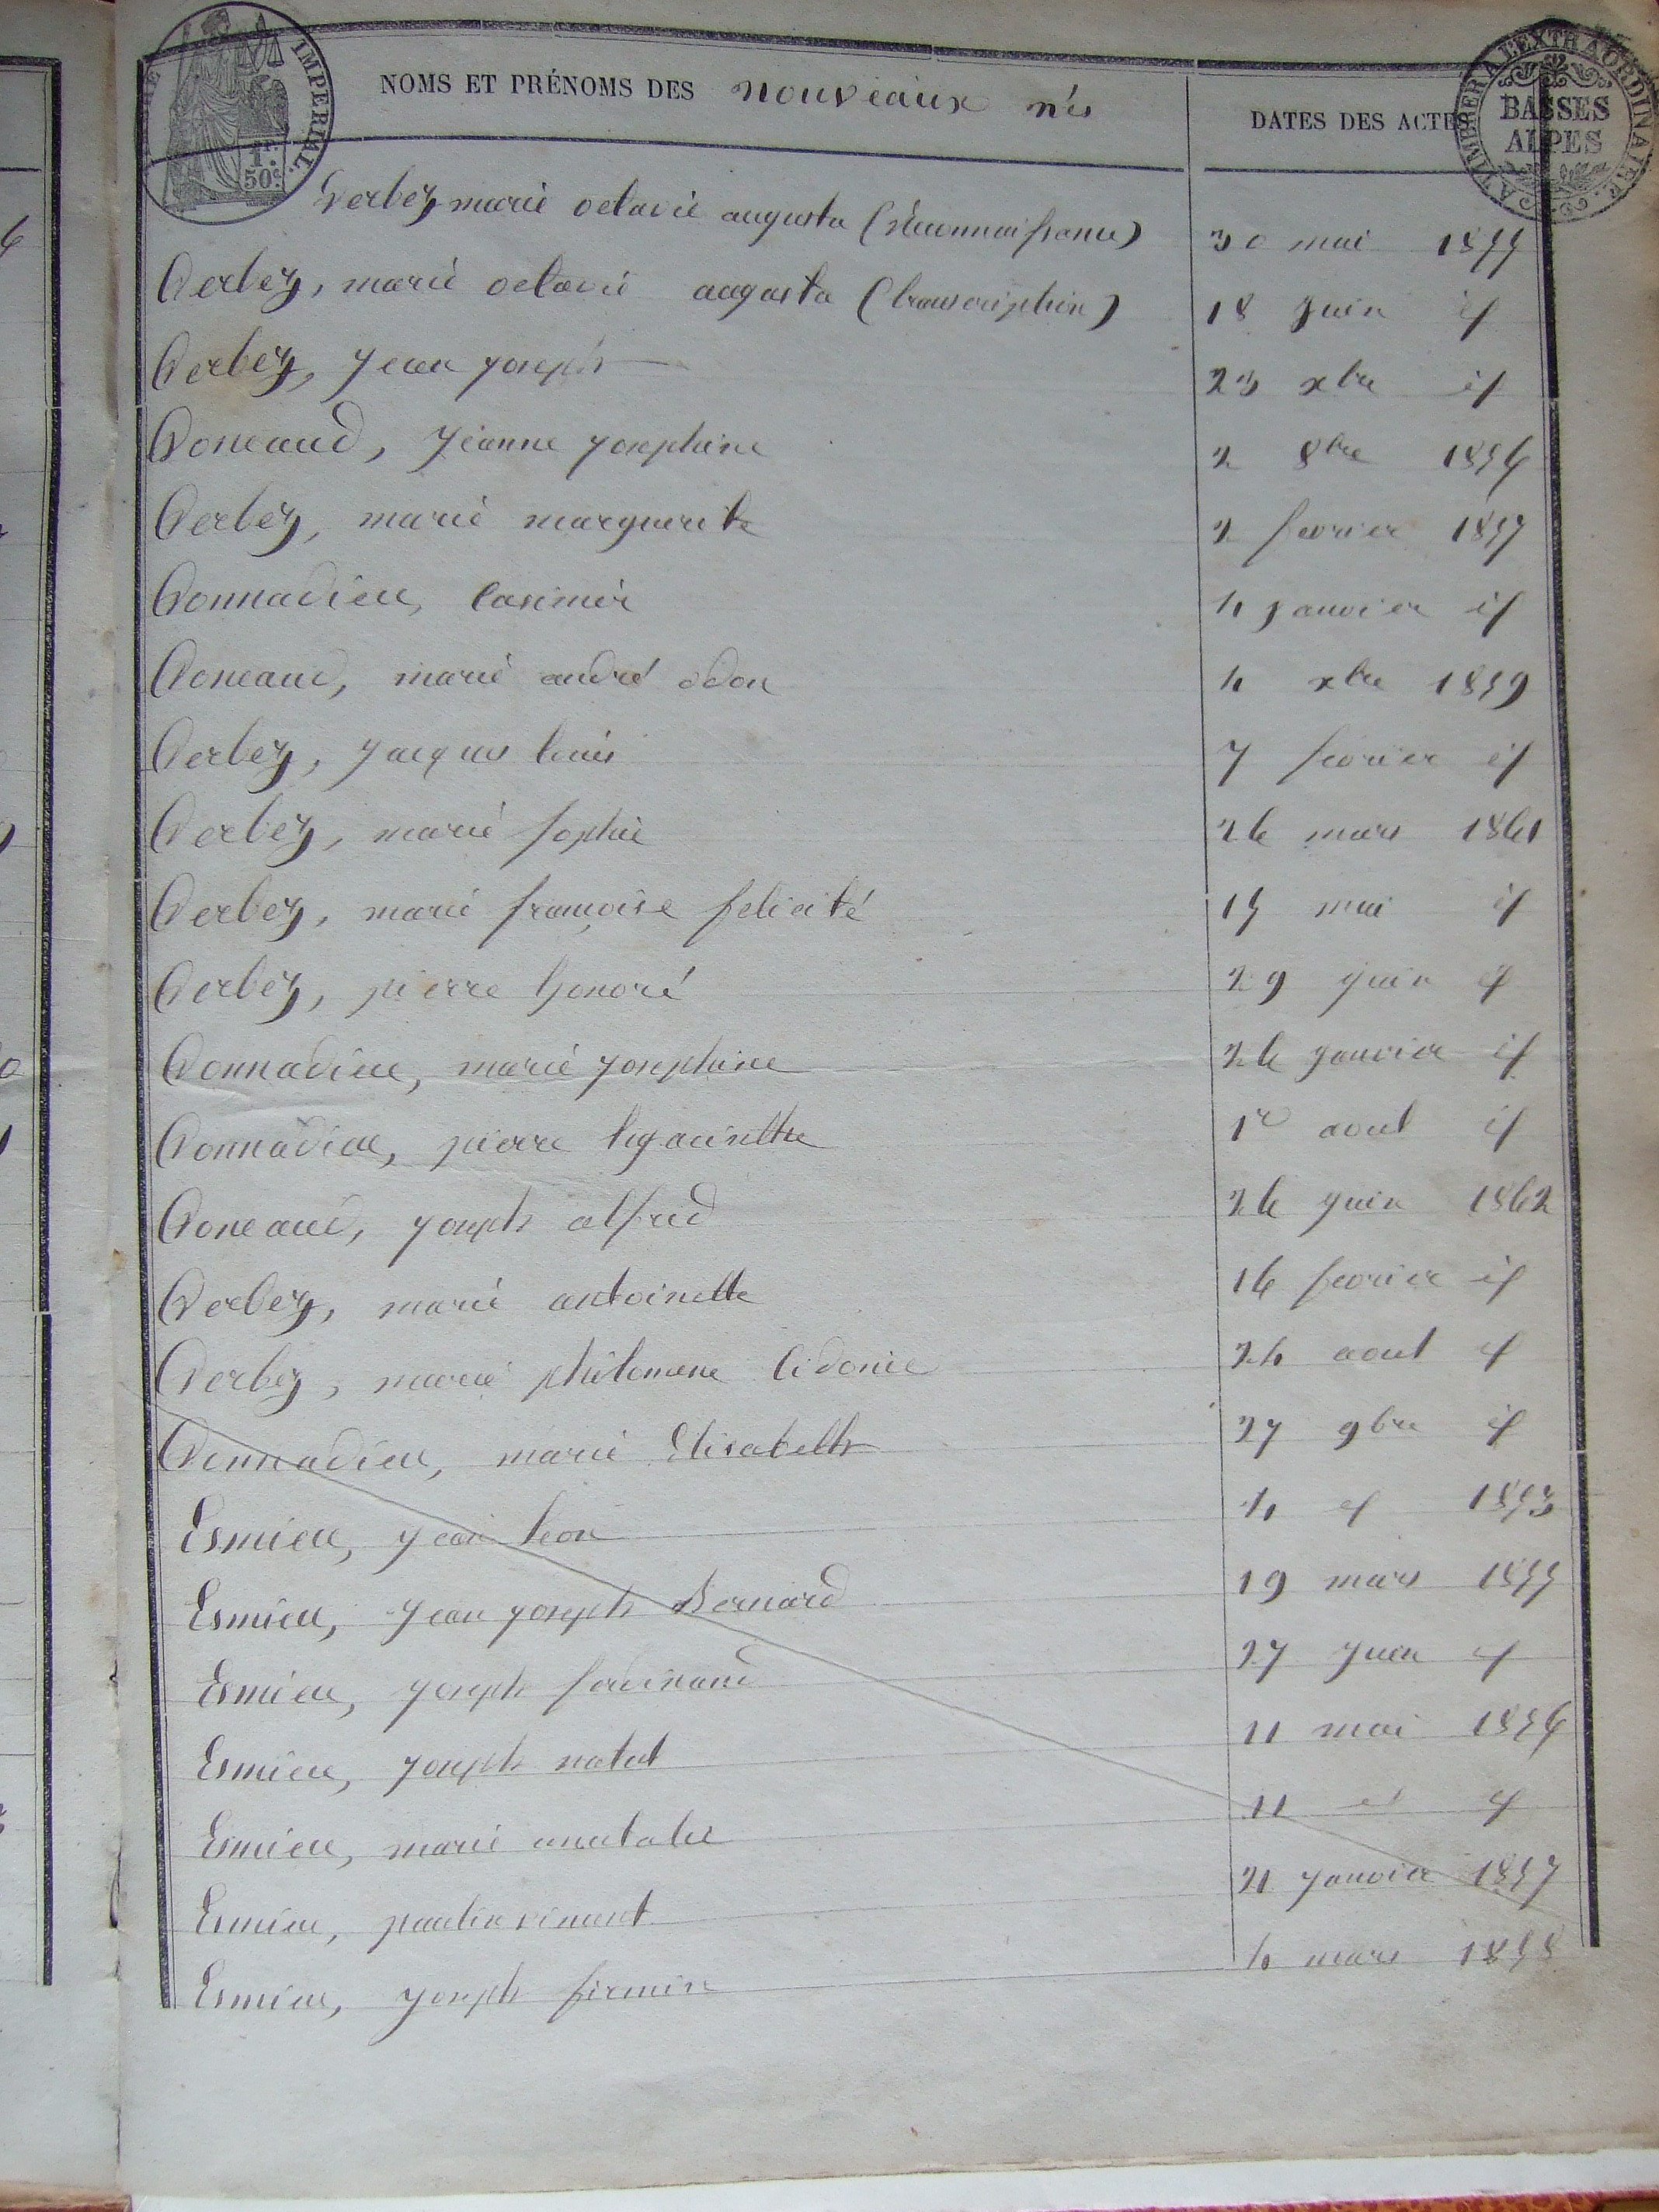 IMPERIAL.
1F.
50c.
A TIMBRER A L'EXTRAORDINAIRE
BASSES
ALPES
NOMS ET PRÉNOMS DES nouveaux nés DATES DES ACTES
Derbez marie octavie augusta (reconnaissance) 30 mai 1855
Derbez, marie octavie augusta (transcription) 18 juin id
Derbez, Jean joseph 23 xbre id
Doneaud, Jeanne josephine 2 8bre 1856
Derbez, marie marguerite 2 fevrier 1857
Donnadieu, Casimir 4 janvier id
Doneaud, marie andré odon 4 xbre 1859
Derbez, jacques louis 7 fevrier id
Derbez, marie sophie 26 mars 1861
Derbez, marie françoise felicité 15 mai id
Derbez, pierre honoré 29 juin id
Donnadieu, marie josephine 26 janvier id
Donnadieu, pierre hyacinthe 1er aout id
Doneaud, joseph alfred 26 juin 1862
Derbez, marie antoinette 16 fevrier id
Derbez, marie philomene Cidonie 24 aout id
Donnadieu, marie Elisabeth 27 9bre id
Esmieu, jean leon 4 id 1853
Esmieu, jean joseph Bernard 19 mars 1855
Esmieu, joseph ferdinand 27 juin id
Esmieu, joseph natal 11 mai 1856
Esmieu, marie anatalie 11 id id
Esmieu, paulin vincent 21 janvier 1857
Esmieu, joseph firmin 4 mars 1858